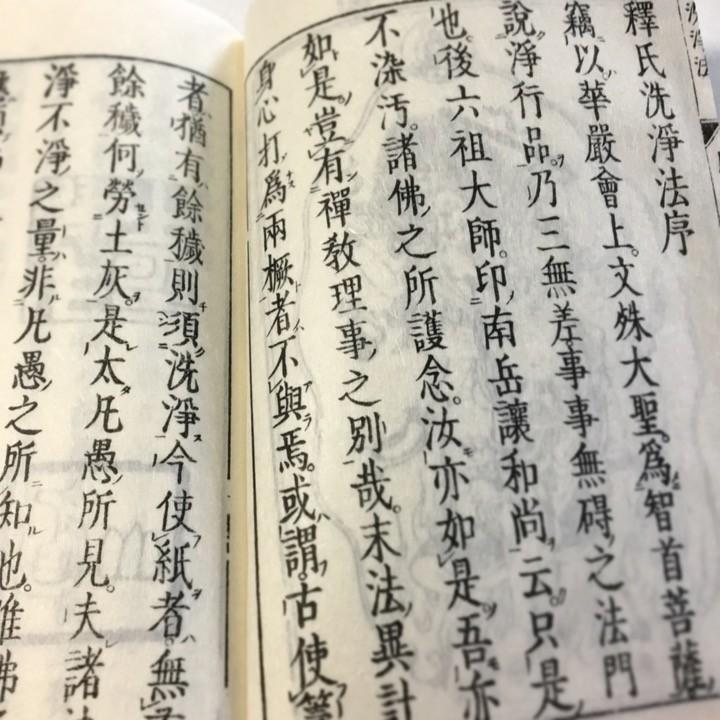 洗淨法
釋氏洗淨法序
竊以華嚴會上。文殊大聖。爲智首菩薩
說淨行品。乃三無差。事事無碍之法門
也。後六祖大師。印南岳讓和尚云。只是
不染汚。諸佛之所護念。汝亦如是。吾亦
如是。豈有禪教理事之別哉。末法異計
身心打爲兩橛者。不與焉。或謂。古使
者。猶有餘穢則須洗淨。今使紙者。無
餘穢何勞土灰。是太凡愚所見。夫諸法
淨不淨之量。非凡愚之所知也。唯佛